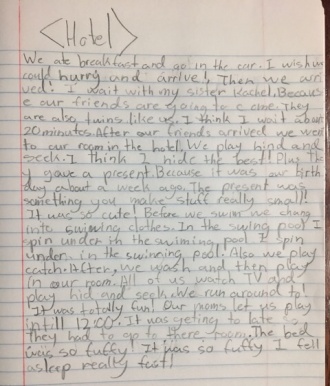 <Hotel>
We ate breakfast and go in the car. I wish we
could hurry and arrive! Then we arri
ved! I wait with my sister Rachel. Becaus
e our friends are going to come. They
are also twins like us. I think I wait about
20 minutes. After our friends arrived we went
to our room in the hotel. We play hind and
seek. I think I hide the best! Plus the
y gave a present. Because it was our birth
day about a week ago. The present was
something you make stuff really small!
It was so cute! Before we swim we chang
into swimming clothes. In the swiing pool I
spin under in the swiming pool I spin
under in the swinning pool! Also we play
catch. After, we wash and then play
in our room. All of us watch TV and
play hid and seek. We run around to!
It was totally fun! Our moms let us play
intill 12:00. It was geting to late so
They had to go to there room. The bed
was so fuffy! It was so fuffy I fell
asleep really fast!